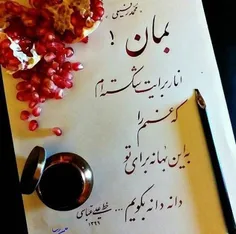 محمد رفیعی
بمان !
انار برایت شکسته ام
که غمم را
به این بهانه برای تو
دانه دانه بگویم ...
خط علی عباسی
۱۳۹۶